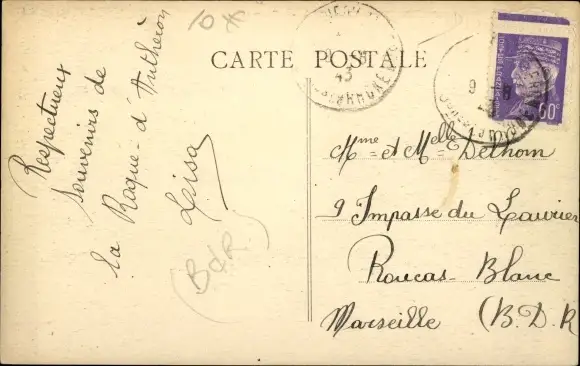 CARTE POSTALE
Respectueux
souvenirs de
la Roque-d'Antheron
Luisa
(BdR)
43
60c
Mme et Melle Delhom
9 Impasse du Laurier
Roucas-Blanc
Marseille (B.D.R